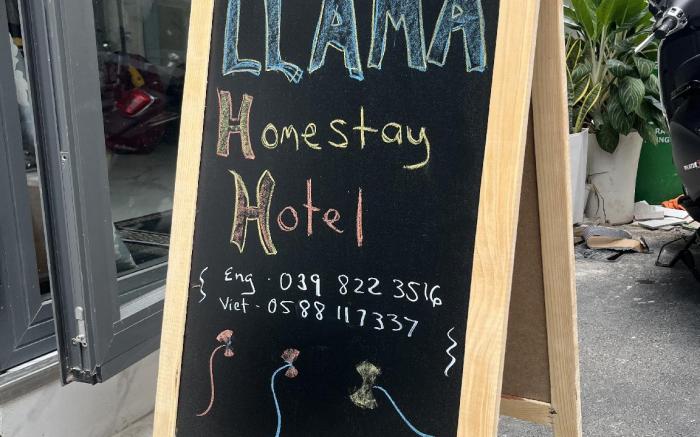 LLAMA
Homestay
Hotel
Eng - 039 822 3516
Viet - 0588 117337